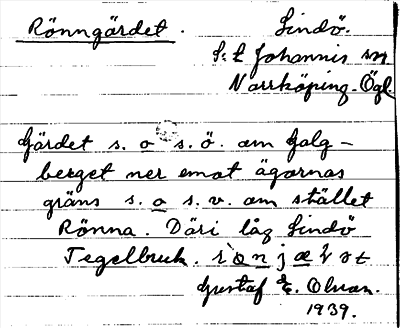 Rönngärdet. Lindö.
S:t Johannis sn
Norrköping. Ögl.
Gärdet s. o s.ö. om Galg-
berget ner emot ägornas
gräns s. o s.v. om stället
Rönna. Däri låg Lindö
Tegelbruk.
Gustaf E. Olsson.
1939.